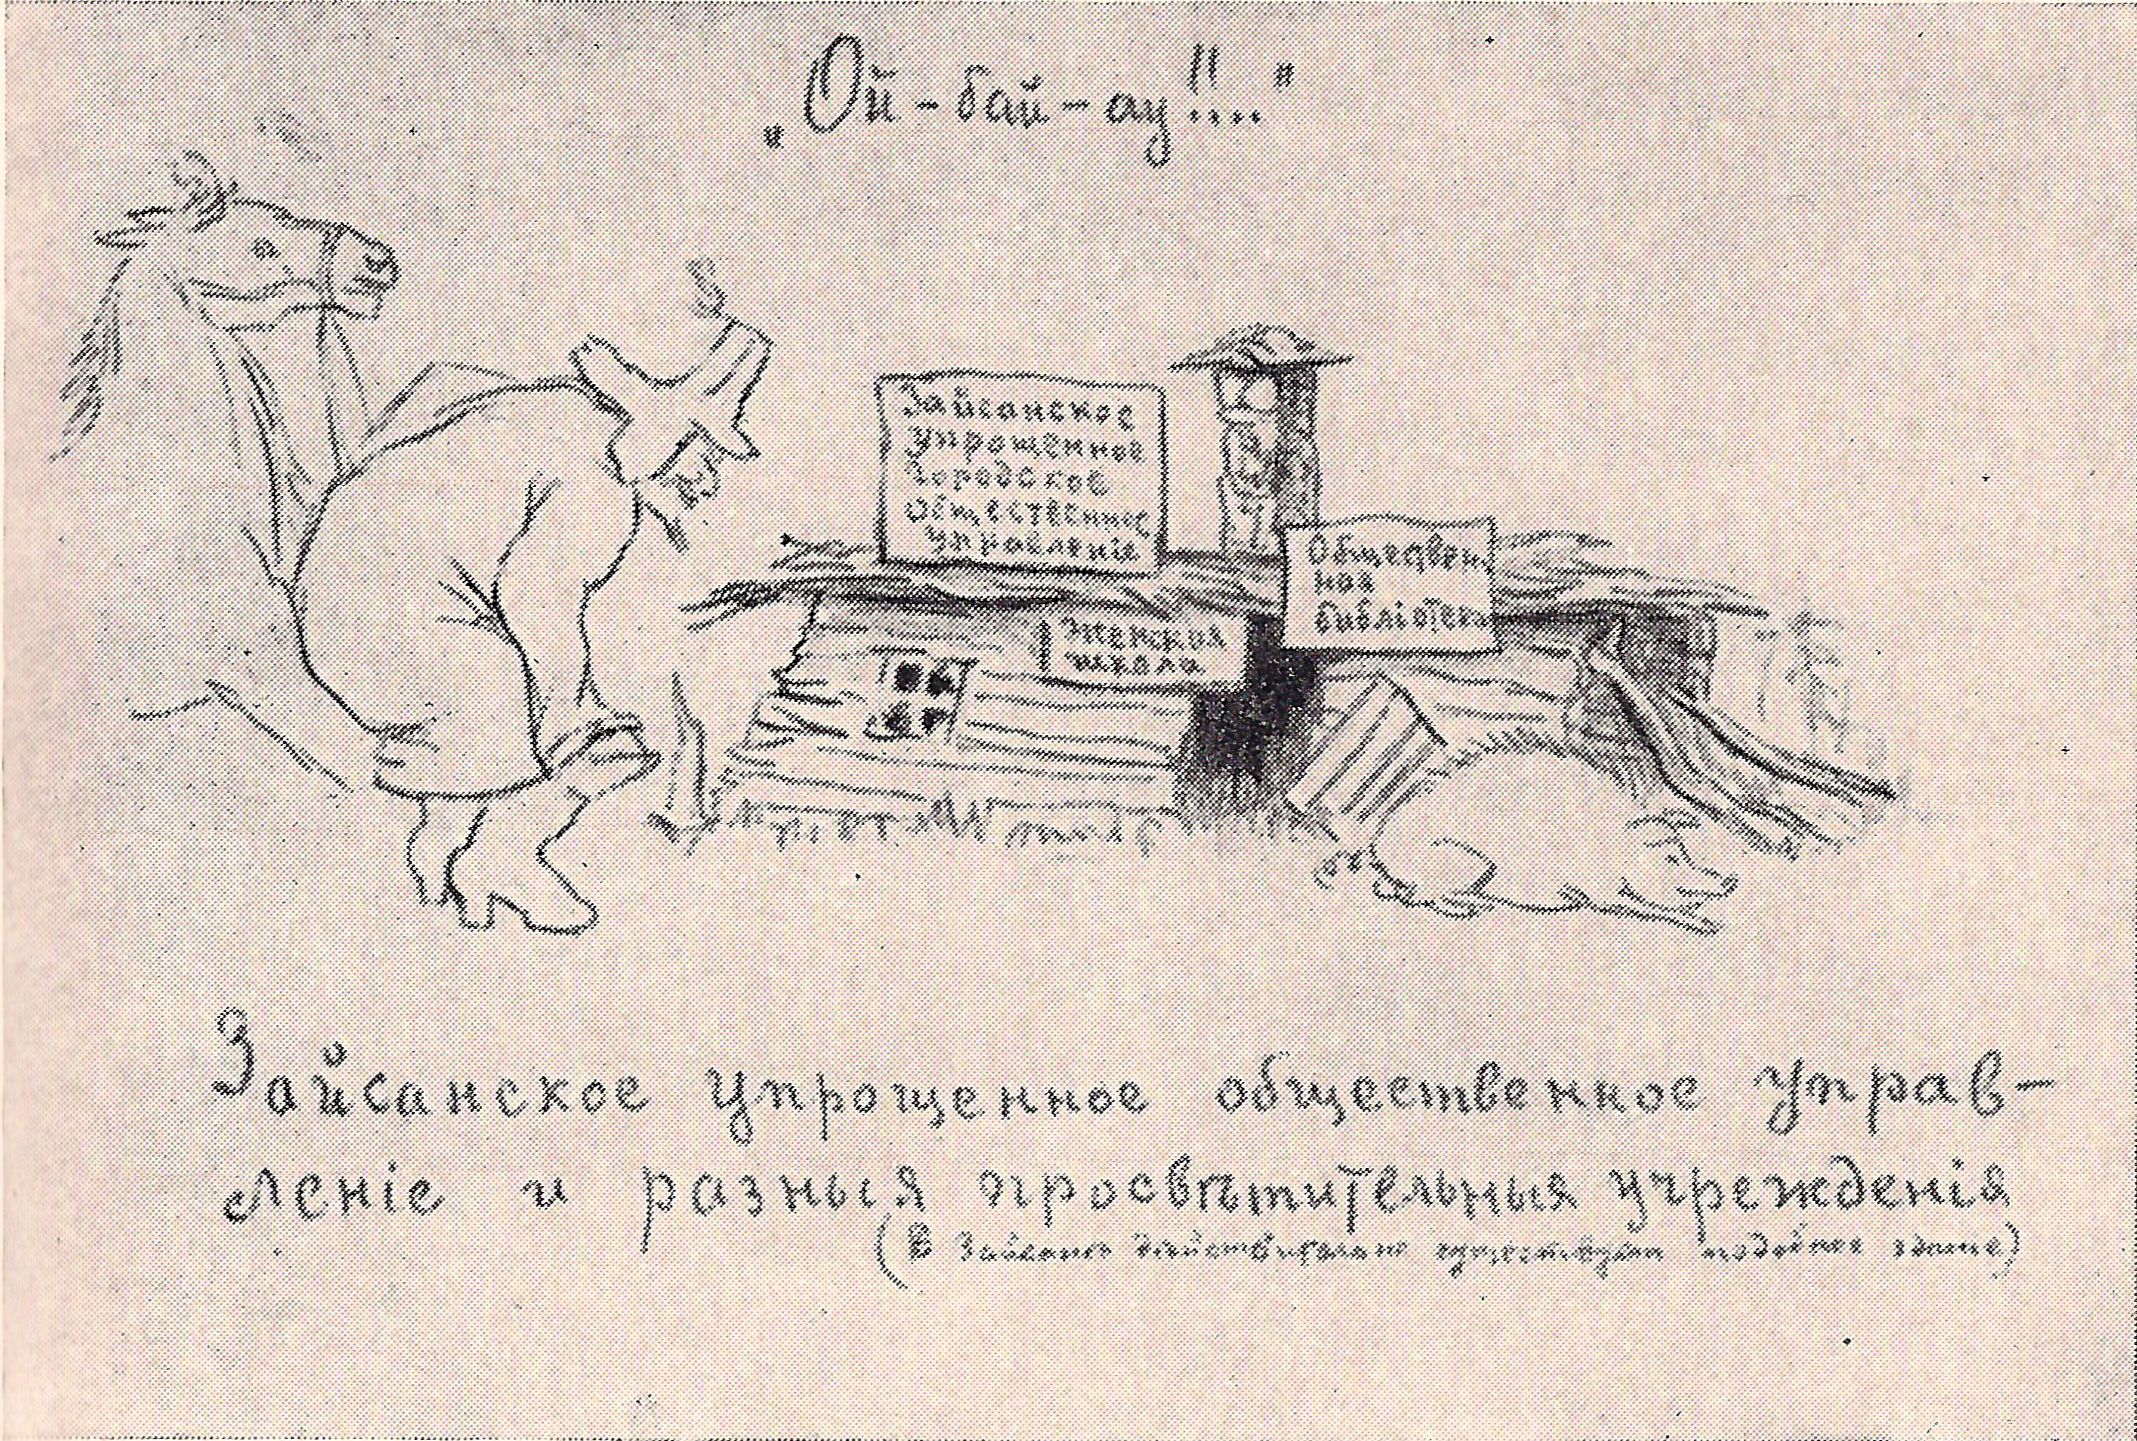 „Ой-бай-ау!!..."
Зайсанское
упрощенное
городское
общественное
управленіе
Обществен
ная
библіотека
Женская
школа
Зайсанское упрощенное общественное управ-
леніе и разныя просвѣтительныя учрежденія
(В Зайсане действительно существует подобное здание)